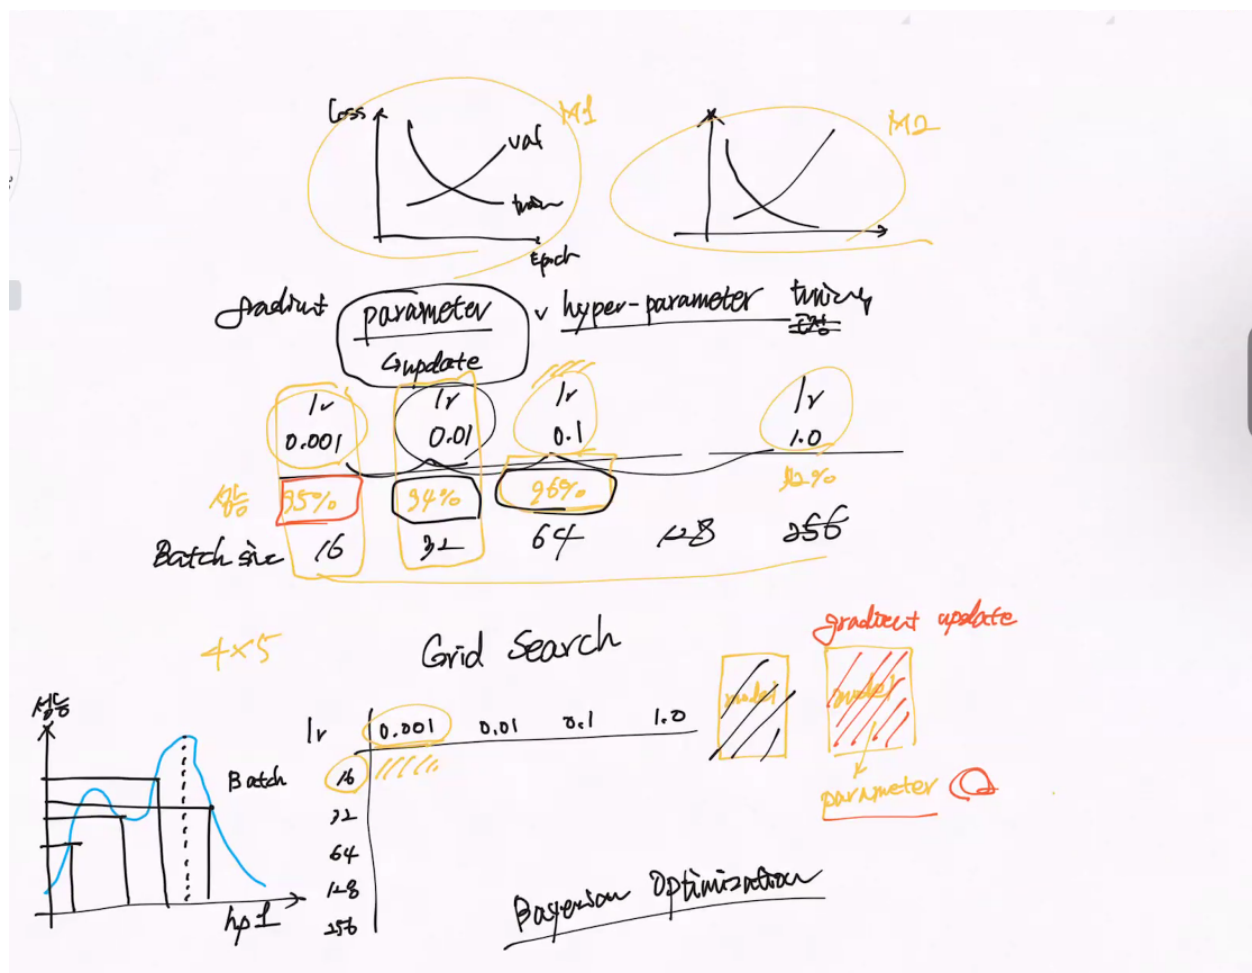 Loss
M1
val
train
Epoch
M2
gradient parameter v hyper-parameter tuning
↳update
lr lr lr lr
0.001 0.01 0.1 1.0
성능 95% 94% 96% 92%
Batch size 16 32 64 128 256
4×5
Grid Search
gradient update
model model
parameter
성능
hp1
lr 0.001 0.01 0.1 1.0
Batch 16
32
64
128
256
Bayesian Optimization